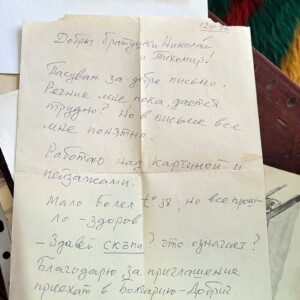 Добры братушки Николай
и Тихомир!
Тасуван за добре письмо.
Речник мне пока, дается
трудно? Но в письме все
мне понятно.
Работаю над картиной и
пейзажами.
Мало болел t° 38, но все прош-
ло - здоров
- Здавей скъпи? что означает?
Благодарю за приглашение
приехат в Болгарию - Добриг